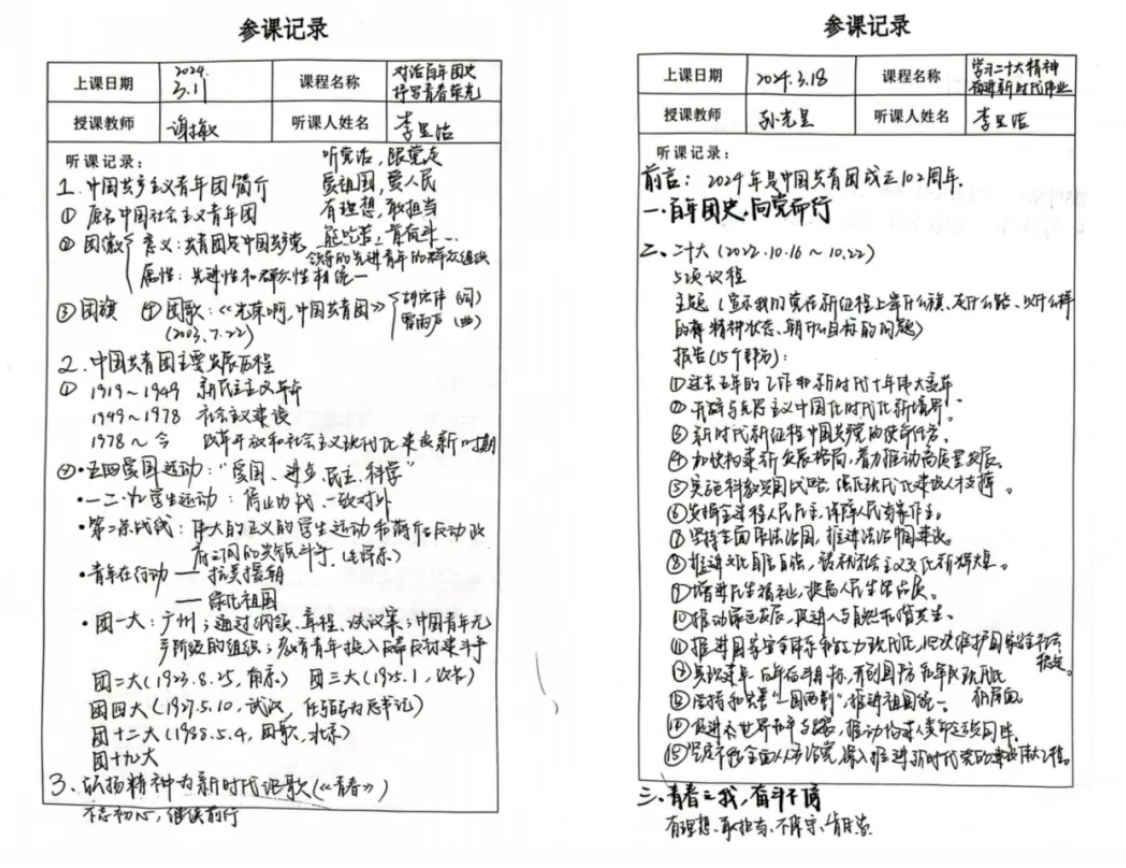 参课记录
上课日期 2024. 3.11 课程名称 对话百年团史 抒写青春荣光
授课教师 谢敏 听课人姓名 李呈洁
听课记录：
听党话，跟党走
爱祖国，爱人民
有理想，敢担当
能吃苦，肯奋斗
1. 中国共产主义青年团简介
① 原名中国社会主义青年团
② 团徽 意义：共青团是中国共产党领导的先进青年的群众组织
属性：先进性和群众性相统一
③ 团旗 ④ 团歌：《光荣啊，中国共青团》 胡宏伟（词）
(2003.7.22) 雷雨声（曲）
2. 中国共青团主要发展历程
① 1919～1949 新民主主义革命
1949～1978 社会主义建设
1978～今 改革开放和社会主义现代化建设新时期
②·五四爱国运动："爱国、进步、民主、科学"
·一二·九学生运动：停止内战、一致对外
·第二条战线：伟大的正义的学生运动和蒋介石反动政
府之间的尖锐斗争.（毛泽东）
·青年在行动 — 抗美援朝
— 绿化祖国
·团一大：广州；通过纲领、章程、决议案；中国青年无
产阶级的组织；教育青年投入反帝反封建斗争
团二大(1923.8.25, 南京) 团三大(1925.1,
团四大(1927.5.10, 武汉, 任弼时为总书记)
团十二大(1988.5.4, 团歌, 北京)
团十九大
3、弘扬精神为新时代讴歌(《青春》)
不忘初心，继续前行
参课记录
上课日期 2024.3.18 课程名称 学习二十大精神 奋进新时代伟业
授课教师 孙光星 听课人姓名 李呈洁
听课记录：
前言： 2024年是中国共青团成立102周年.
一、百年团史，向党而行
二、二十大 (2022.10.16 ～ 10.22)
5项议程
主题（宣示我们党在新征程上举什么旗、走什么路、以什么样
的 精神状态、朝什么目标的问题）
报告(15个部分)：
①过去五年的工作和新时代十年伟大变革
②开辟马克思主义中国化时代化新境界。
③新时代新征程中国共产党的使命任务。
④加快构建新发展格局，着力推动高质量发展。
⑤实施科教兴国战略，强化现代化建设人才支撑。
⑥发展全过程人民民主，保障人民当家作主。
⑦坚持全面依法治国，推进法治中国建设。
⑧推进文化自信自强，铸就社会主义文化新辉煌。
⑨增进民生福祉，提高人民生活品质。
⑩推动绿色发展，促进人与自然和谐共生。
⑪推进国家安全体系和能力现代化，坚决维护国家安全和社会
稳定。
⑫实现建军一百年奋斗目标，开创国防和军队现代化
新局面
⑬坚持和完善"一国两制"，推进祖国统一。
⑭促进世界和平与发展，推动构建人类命运共同体。
⑮坚定不移全面从严治党，深入推进新时代党的建设伟大工程。
三、青春之我，奋斗不负
有理想、敢担当、能吃苦、肯奋